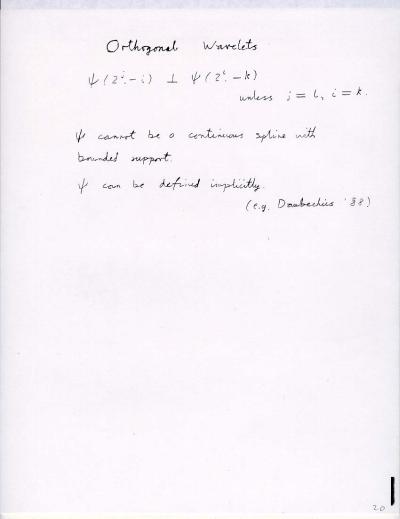 Orthogonal Wavelets
ψ(2^j· - i) ⊥ ψ(2^l· - k)
unless j = l, i = k.
ψ cannot be a continuous spline with
bounded support.
ψ can be defined implicitly.
(e.g. Daubechies '88)
20